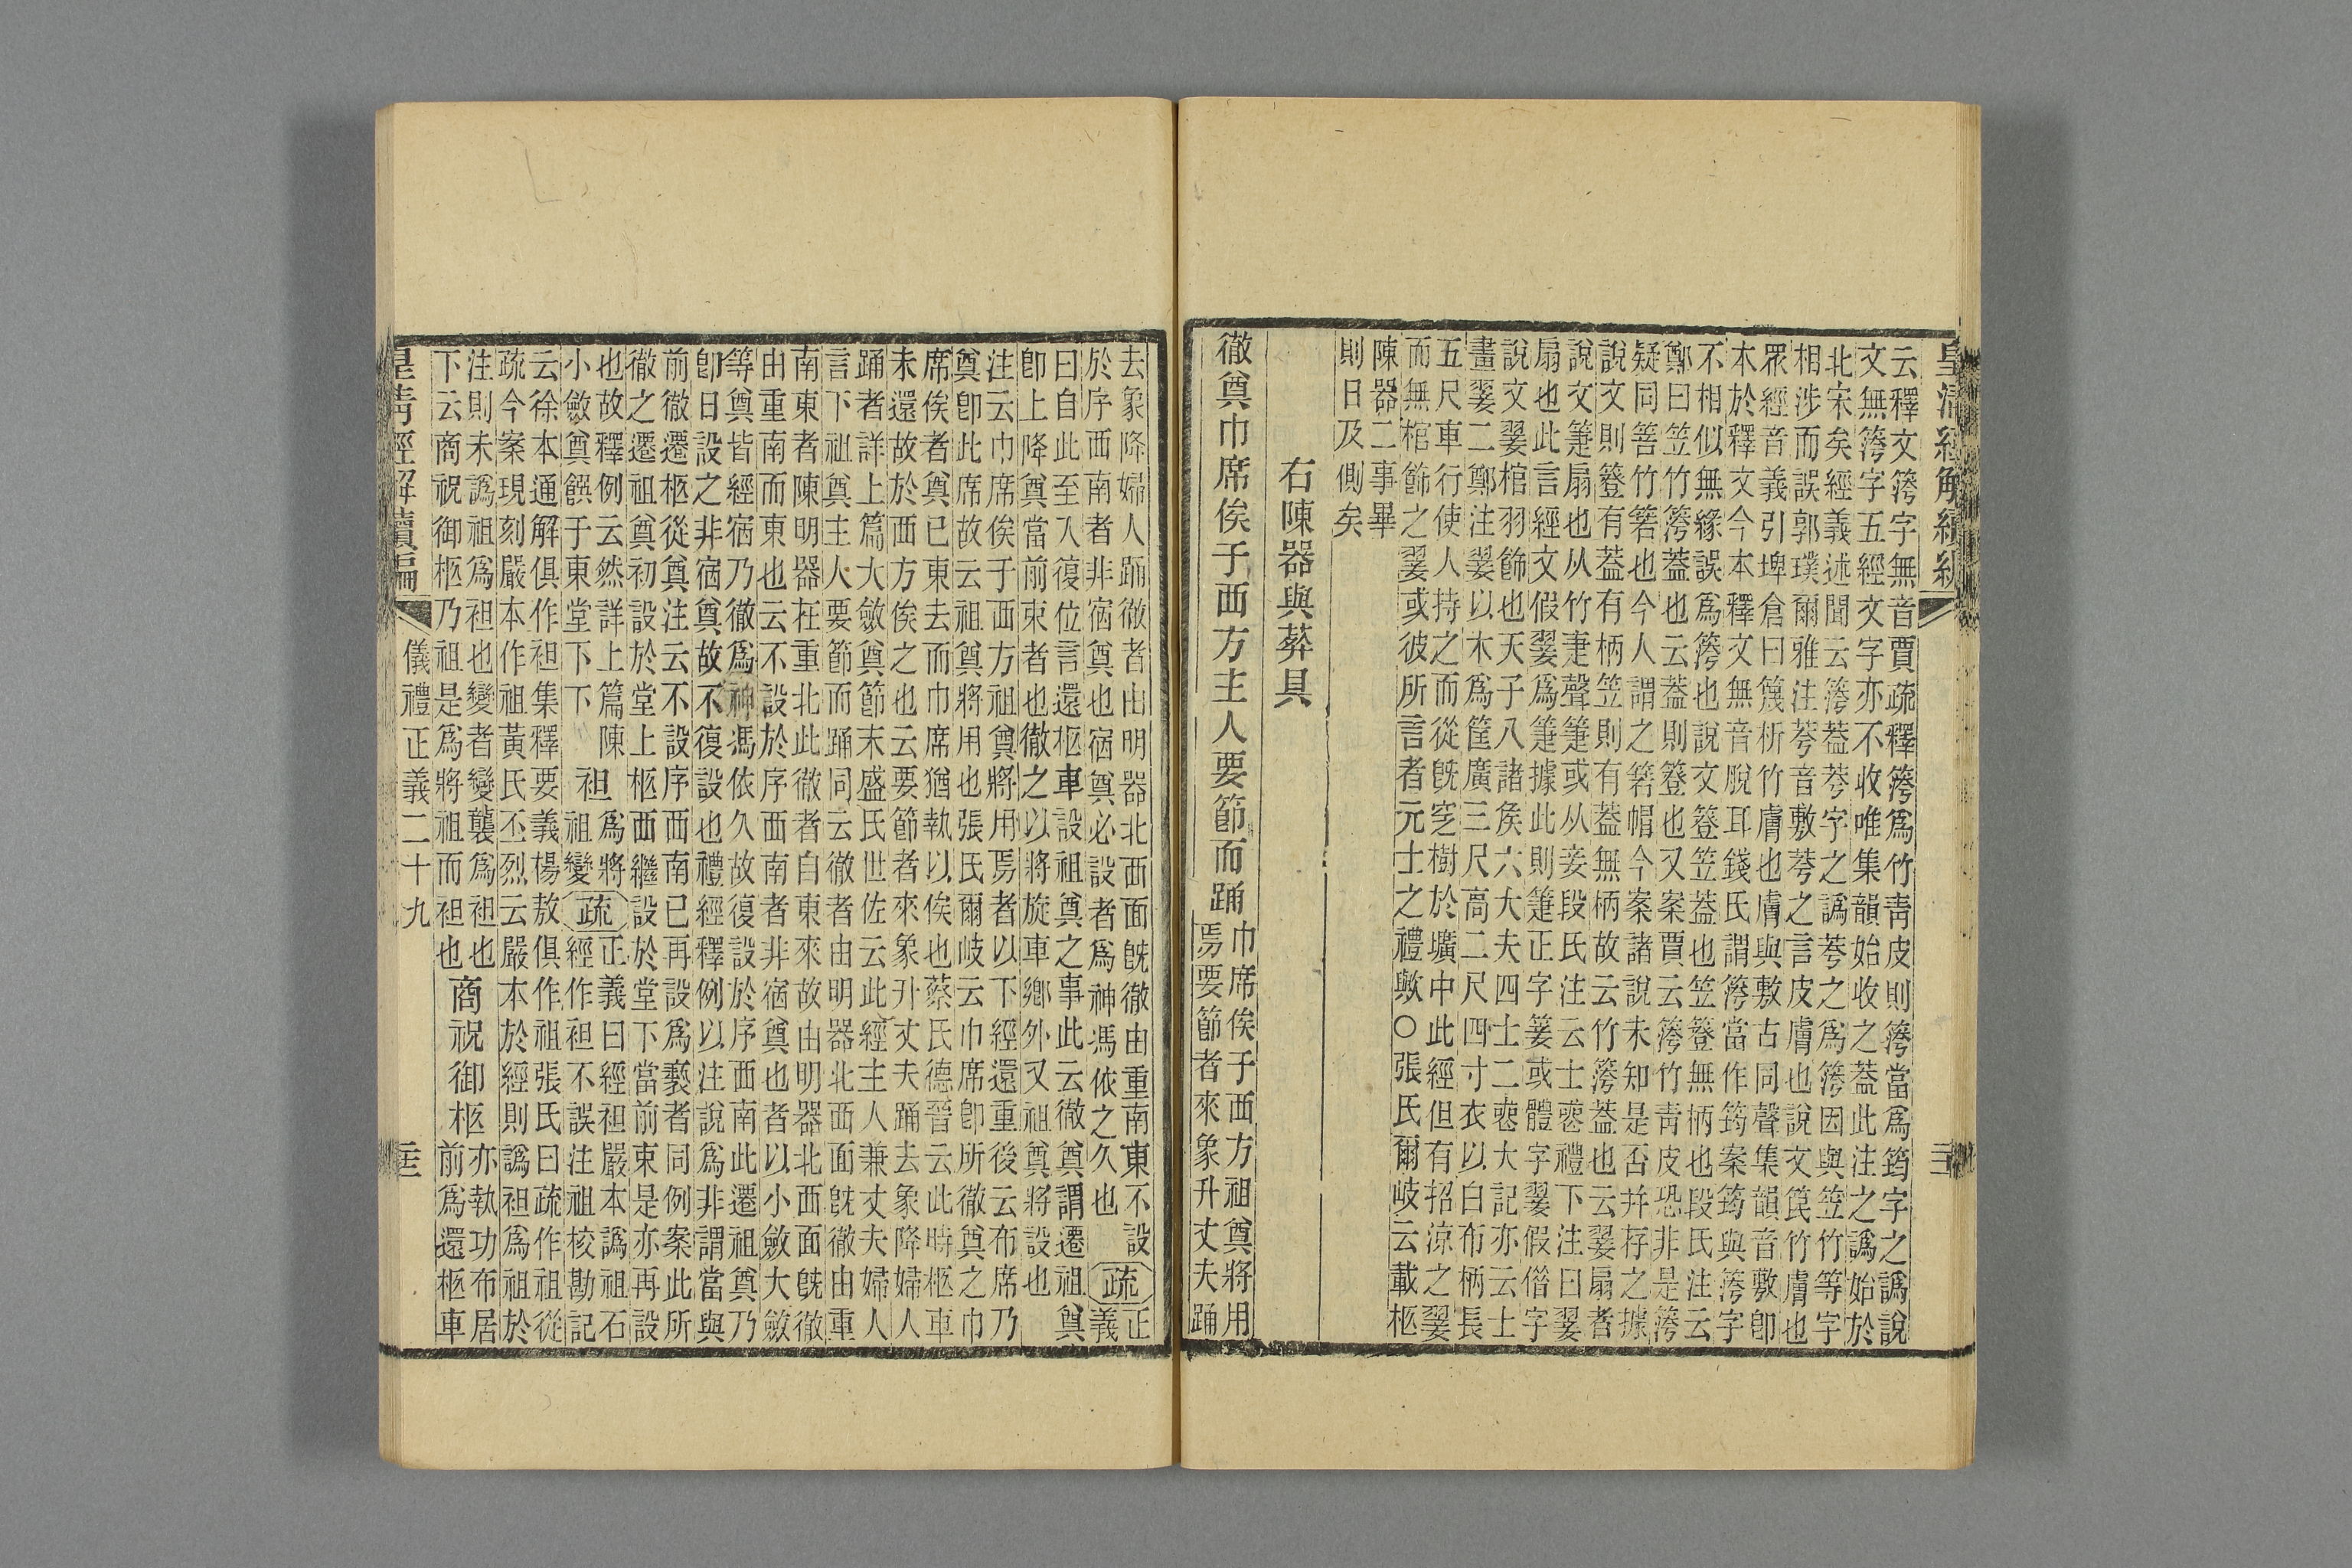 皇清經解續編
云釋文簩字無音賈疏釋簩為竹靑皮則簩當為筠字之譌說
文無簩字五經文字亦不收唯集韻始收之葢此注之譌始於
北宋矣經義述聞云簩葢荂字之譌荂之為簩因與笠竹等字
相涉而誤郭璞爾雅注荂音敷荂之言皮膚也說文笢竹膚也
眾經音義引埤倉曰篾析竹膚也膚與敷古同聲集韻音敷卽
本於釋文今本釋文無音脫耳錢氏謂簩當作筠案筠與簩字
不相似無緣誤為簩也說文簦笠葢也笠簦無柄也段氏注云
鄭曰笠竹簩葢也云葢則簦也又案賈云簩竹靑皮恐非是簩
疑同箁竹箬也今人謂之箬帽今案諸說未知是否幷存之據
說文則簦有葢有柄笠則有葢無柄故云竹簩葢也云翣扇者
說文箑扇也从竹疌聲箑或从妾段氏注云士喪禮下注曰翣
扇也此言經文假翣為箑據此則箑正字篓或體字翣假僣字
說文翣棺羽飾也天子八諸矦六大夫四士二喪大記亦云士
畫翣二鄭注翣以木為筐廣三尺高二尺四寸衣以白布柄長
五尺車行使人持之而從旣窆樹於壙中此經但有招涼之翣
而無棺飾之翣或彼所言者元士之禮歟○張氏爾岐云載柩
陳器二事畢
則日及側矣
右陳器與葬具
徹奠巾席俟于西方主人要節而踊
巾席俟于西方祖奠將用
焉要節者來象升丈夫踊
去象降婦人踊徹者由明器北西面旣徹由重南東不設
於序西南者非宿奠也宿奠必設者為神馮依之久也疏正義
曰自此至入復位言還柩車設祖奠之事此云徹奠謂遷祖奠
卽上降奠當前束者也徹之以將旋車鄉外又祖奠將設也
注云巾席俟于西方祖奠將用焉者以下經還重後云布席乃
奠卽此席故云祖奠將用也張氏爾岐云巾席卽所徹奠之巾
席俟者奠已東去而巾席猶執以俟也蔡氏德晉云此時柩車
未還故於西方俟之也云要節者來象升丈夫踊去象降婦人
踊者詳上篇大斂奠節末盛氏世佐云此經主人兼丈夫婦人
言下祖奠主人要節而踊同云徹者由明器北西面旣徹由重
南東者陳明器在重北此徹者自東來故由明器北西面旣徹
由重南而東也云不設於序西南者非宿奠也者以小斂大斂
等奠皆經宿乃徹為神馮依久故復設於序西南此遷祖奠乃
卽日設之非宿奠故不復設也禮經釋例以注說為非謂當與
前徹遷柩從奠注云不設序西南已再設為褻者同例案此所
徹之遷祖奠初設於堂上柩西繼設於堂下當前束是亦再設
也故釋例云然詳上篇陳
小斂奠饌于東堂下下
袒為將祖變
疏正義曰經袒嚴本譌祖石
經作袒不誤注祖校勘記
云徐本通解俱作袒集釋要義楊敖俱作祖張氏曰疏作祖從
疏今案現刻嚴本作祖黃氏丕烈云嚴本於經則譌袒為祖於
注則未譌祖為袒也變者變襲為袒也
下云商祝御柩乃祖是為將祖而袒也
商祝御柩
亦執功布居
前為還柩車
皇清經解續編
儀禮正義二十九